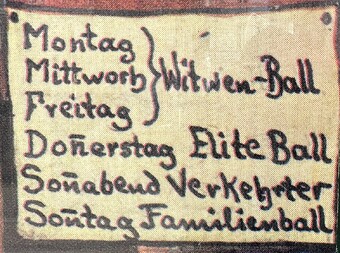 Montag
Mittwoch } Witwen-Ball
Freitag
Don̄erstag Elite Ball
Son̄abend Verkehrter
Son̄tag Familienball